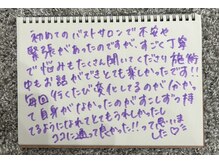 初めてのバストサロンで不安や
緊張があったのですが、すごく丁寧
で悩みもたくさん聞いてくださり施術
中もお話ができとても楽しかったです!!
毎回行くたび変化してるのが分かって
自身がなかったのがすこしずつ持
てるようになれてとてもうれしかったし
ココに通って良かった!!って思いま
した♡